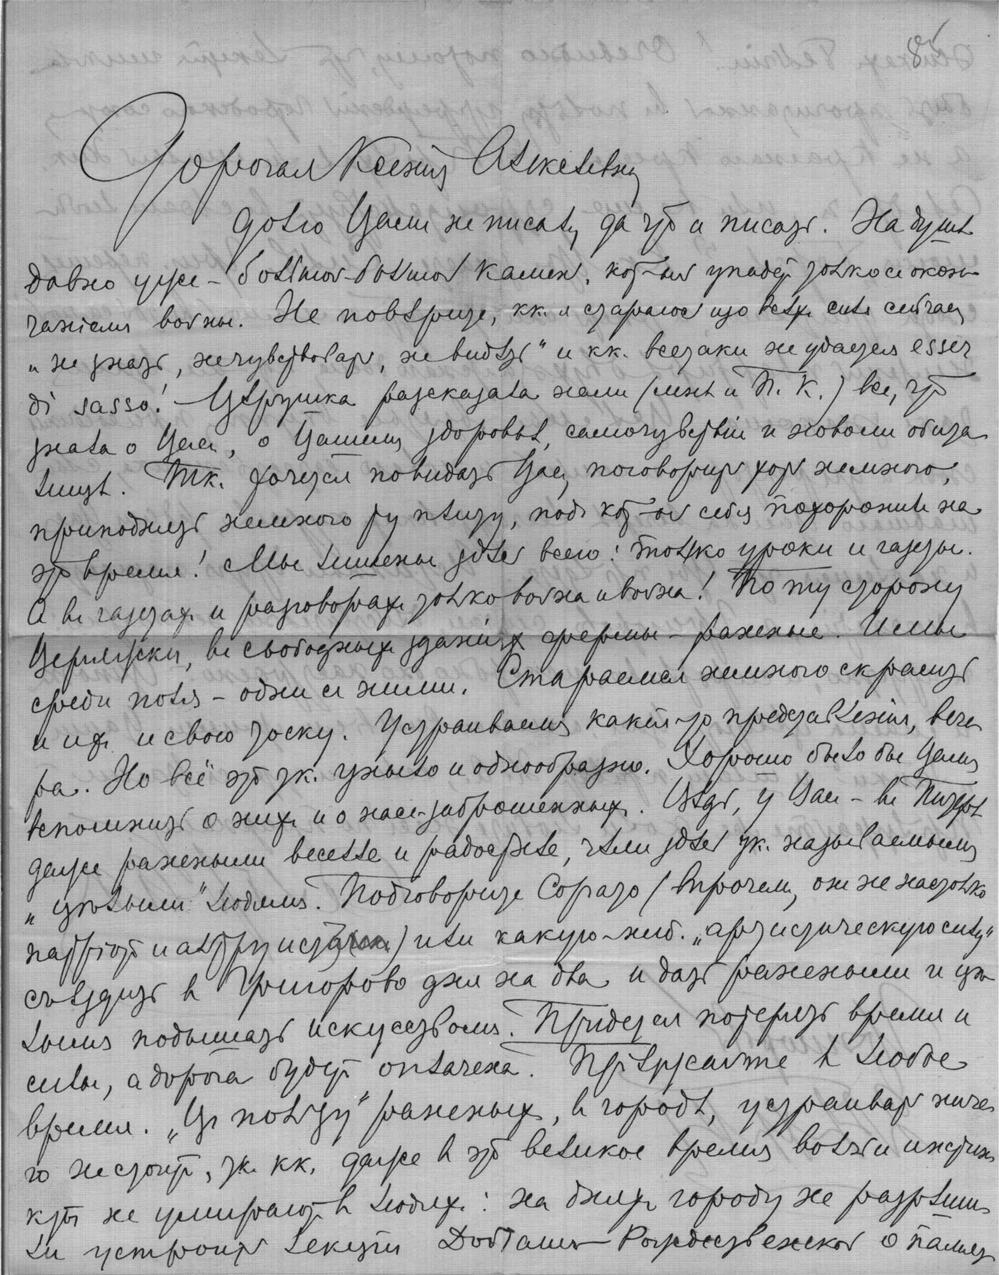 Дорогая Ксения Алексеевна
долго Вам не писалъ, да что и писать. На душѣ
давно уже – большой-большой камень, кот-ый упадетъ только съ окон-
чаніемъ войны. Не повѣрите, кк. я стараюсь изо всѣхъ силъ сейчасъ
„не знать, не чувствовать, не видѣть" и кк. всетаки не удается esser
di sasso! Петрушка разсказала намъ (мнѣ и П. К.) все, что
знала о Васъ, о Вашемъ здоровьѣ, самочувствіи и новомъ обита
лищѣ. Тк. хочется повидать Васъ, поговорить хоть немного,
приподнять немного ту плиту, подъ кот-ой себя похоронилъ на
это время! Мы лишены здѣсь всего: только уроки и газеты.
А въ газетахъ и разговорахъ только война и война! По ту сторону
въ свободныхъ зданіяхъ фермы – раненые. И мы
среди поля – одни съ ними. Стараемся немного скрасить
и ихъ и свою тоску. Устраиваемъ какія-то представленія, вече
ра. Но всё это тк. уныло и однообразно. Хорошо было бы Вамъ
вспомнить о нихъ и о насъ заброшенныхъ. Вѣдь, у Васъ – въ
даже раненымъ веселѣе и радостнѣе, чѣмъ здѣсь тк. называемымъ
„цѣлымъ" людямъ. Подговорите (впрочемъ, онъ не настолько
патріотъ и альтруистъ) или какую-ниб. „артистическую силу"
съѣздить в Григорово дня на два и дать раненымъ и цѣ-
лымъ подышать искусствомъ. Придется потерять время и
силы, а дорога будетъ оплачена. Пріѣзжайте в любое
время. „Въ пользу" раненыхъ, в городѣ, устраивать ниче
го не стоитъ, тк. кк. даже в это великое время вольчи инстин
кты не умираютъ в людяхъ: на дняхъ городу не разрѣши-
ли устроить лекцію Рождественской о